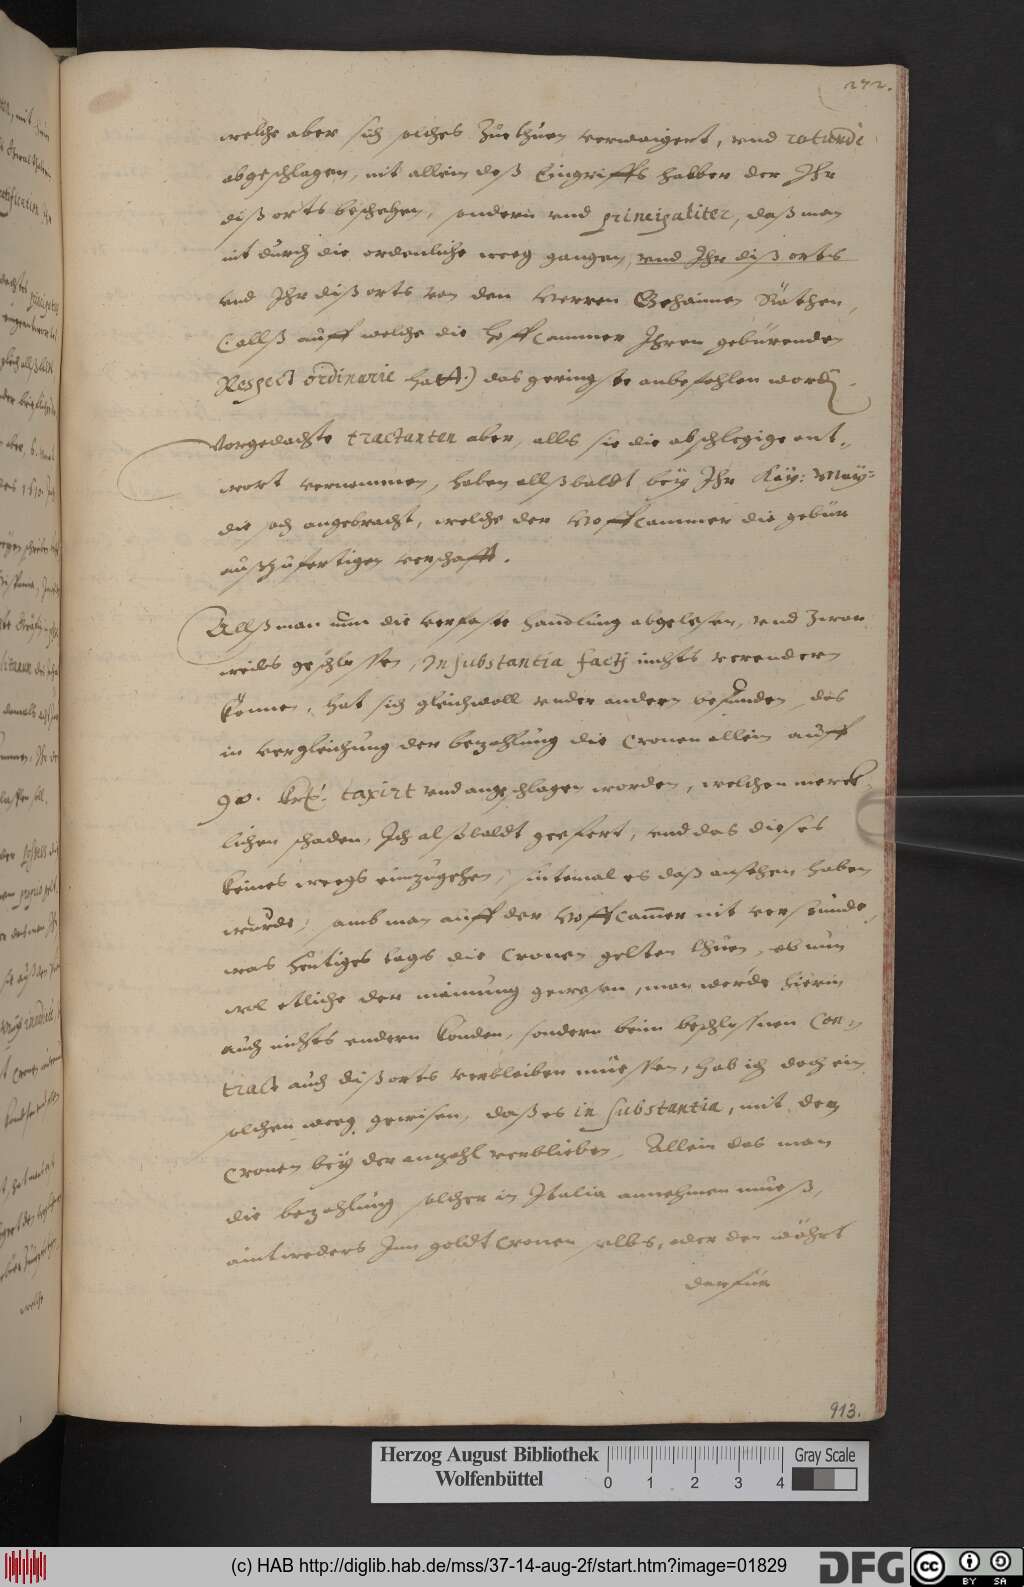 272.
welche aber sich solches Zue thuen verwaigert, vnd rotundè
abgeschlagen, nit allein deß Eingriffs halber der Ihr
diß orts beschehen, sondern vnd principaliter, daß man
nit durch die ordenliche weeg gangen, vnd Ihr diß orts
vnd Ihr diß orts von den Herren Gehaimen Räthen,
(: allß auff welche die HoffCammer Ihren gebürenden
Respect ordinarie hatt :) das geringste anbefohlen word
Vorgedachte tractanten aber, alls sie die abschlegige ant„
wort vernommen, haben allßbaldt bey Ihr Kay: May:
die sach angebracht, welche der HoffCammer die gebür
außzufertigen verschafft.
Allß man nun die verfaste handlung abgelesen, vnd Zwar
geschlossen, In substantia facti nichts verendern
können, hat sich gleichwoll vnder andern befunden, das
in vergleichung der bezahlung die Cronen allein auff
90. taxirt vnd angeschlagen worden, welchen merck„
lichen schaden, Ich alßbaldt geefert, vnd das dieses
keines weegs einzugehen, sintemal es daß ansehen haben
wurde, samb man auff der HoffCammer nit verstünde,
was heutiges tags die Cronen gelten thuen, ob nun
wol etliche der mainung gewesen, man werde hierin
auch nichts endern konden, sondern beim beschlossnen Con„
tract auch dißorts verbleiben müessen, hab ich doch ein
solchen weeg gewisen, daß es in substantia, mit den
Cronen bey der anzahl verblieben, Allein das man
die bezahlung solcher in Italia annehmen mueß,
aintweders Inn goldt Cronen selbs, oder den währt
darfür
913.
Herzog August Bibliothek
Wolfenbüttel
0 1 2 3 4
Gray Scale
(c) HAB http://diglib.hab.de/mss/37-14-aug-2f/start.htm?image=01829
DFG
cc BY SA